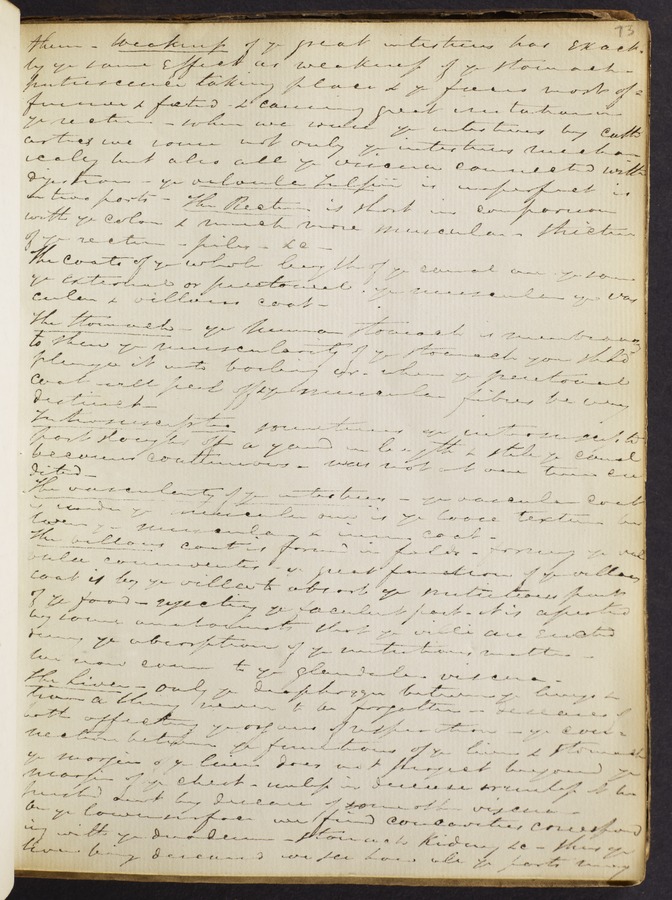 73
them - weakness of ye great intestines has exact-
ly ye same effect as weakness of ye stomach -
putrescence taking place & ye fæces most of=
& causing great irritation in
ye rectum - when we ye intestines by cath
artics we not only ye intestines mechan
ically but also all ye viscera connected with
digestion - ye valvula Tulpii is imperfect is
in two parts - The Rectum is short in comparison
with ye colon & much more muscular - stricture
of ye rectum - piles - &c -
The coats of ye whole length of ye canal are ye same
ye external or peritoneal, ye muscular ye vas
cular & villous coat -
The Stomach - ye human stomach is membranous
to shew ye muscularity of ye stomach you shd
plunge it into boiling wr. when ye peritoneal
coat will peel off & ye muscular fibres be very
distinct -
Introsusceptio sometimes ye
part sloughs off a yard in length & still ye canal
becomes continuous - was not at one time cre
dited -
The vascularity of ye intestines - ye vascular coat
is under ye muscular one is ye loose texture be
tween ye muscular & inner coat -
The villous coat is found in folds - forming ye val
vulae conniventes - ye great function of ye villous
coat is by ye villi to absorb ye nutritious part
of ye food - rejecting ye faeculent part - it is asserted
by some anatomists that ye villi are erected
during ye absorption of ye nutritious matter -
We now come to ye glandular viscera -
The Liver - only ye diaphragm between ye lungs &
liver a thing never to be forgotten - diseases of
both affecting ye organs of respiration - ye con=
nection between ye functions of ye liver & stomach
ye margin of ye liver does not project beyond ye
margin of ye chest - unless in disease or unless it be
pushed out by disease of some other viscera
on ye lower surface we find concavities correspond
ing with ye duodenum - stomach kidney &c - thus ye
liver being diseased we see how all ye parts may